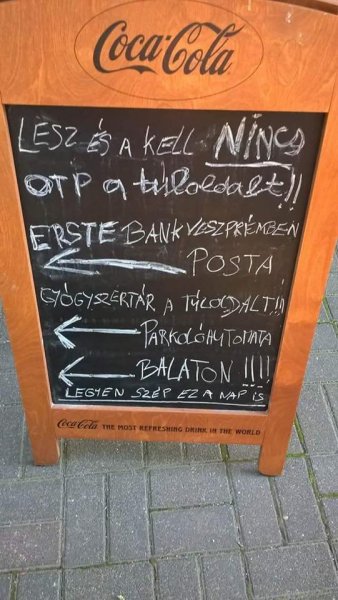 Coca-Cola
LESZ ÉS A KELL NINCS
OTP a túloldalt!!
ERSTE BANK VESZPRÉMBEN
POSTA
GYÓGYSZERTÁR A TÚLOLDALT!!!
PARKOLÓAUTOMATA
BALATON !!!!
LEGYEN SZÉP EZ A NAP IS
Coca-Cola THE MOST REFRESHING DRINK IN THE WORLD